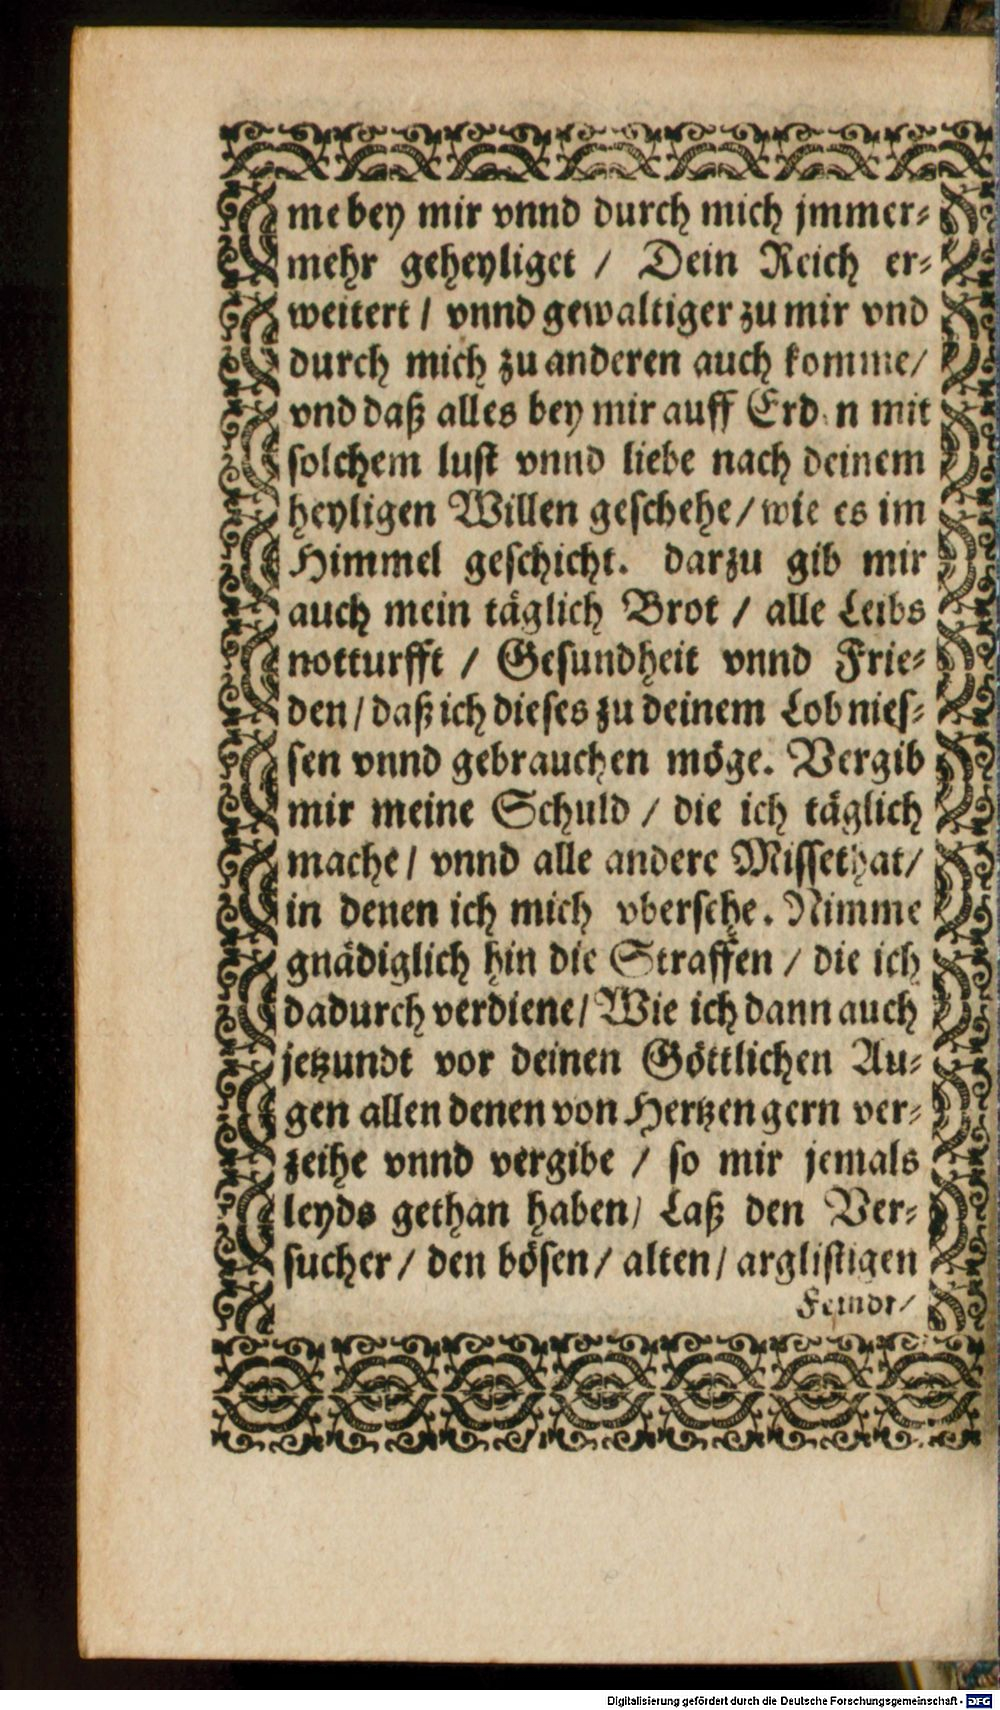 me bey mir vnnd durch mich jmmer⸗
mehr geheyliget / Dein Reich er⸗
weitert / vnnd gewaltiger zu mir vnd
durch mich zu anderen auch komme /
vnd daß alles bey mir auff Erden mit
solchem lust vnnd liebe nach deinem
heyligen Willen geschehe / wie es im
Himmel geschicht. darzu gib mir
auch mein täglich Brot / alle Leibs
notturfft / Gesundheit vnnd Frie⸗
den / daß ich dieses zu deinem Lob nies⸗
sen vnnd gebrauchen möge. Vergib
mir meine Schuld / die ich täglich
mache / vnnd alle andere Missethat /
in denen ich mich vbersehe. Nimme
gnädiglich hin die Straffen / die ich
dadurch verdiene / Wie ich dann auch
jetzundt vor deinen Göttlichen Au⸗
gen allen denen von Hertzen gern ver⸗
zeihe vnnd vergibe / so mir jemals
leyds gethan haben / Laß den Ver⸗
sucher / den bösen / alten / arglistigen
Feindt /
Digitalisierung gefördert durch die Deutsche Forschungsgemeinschaft - DFG